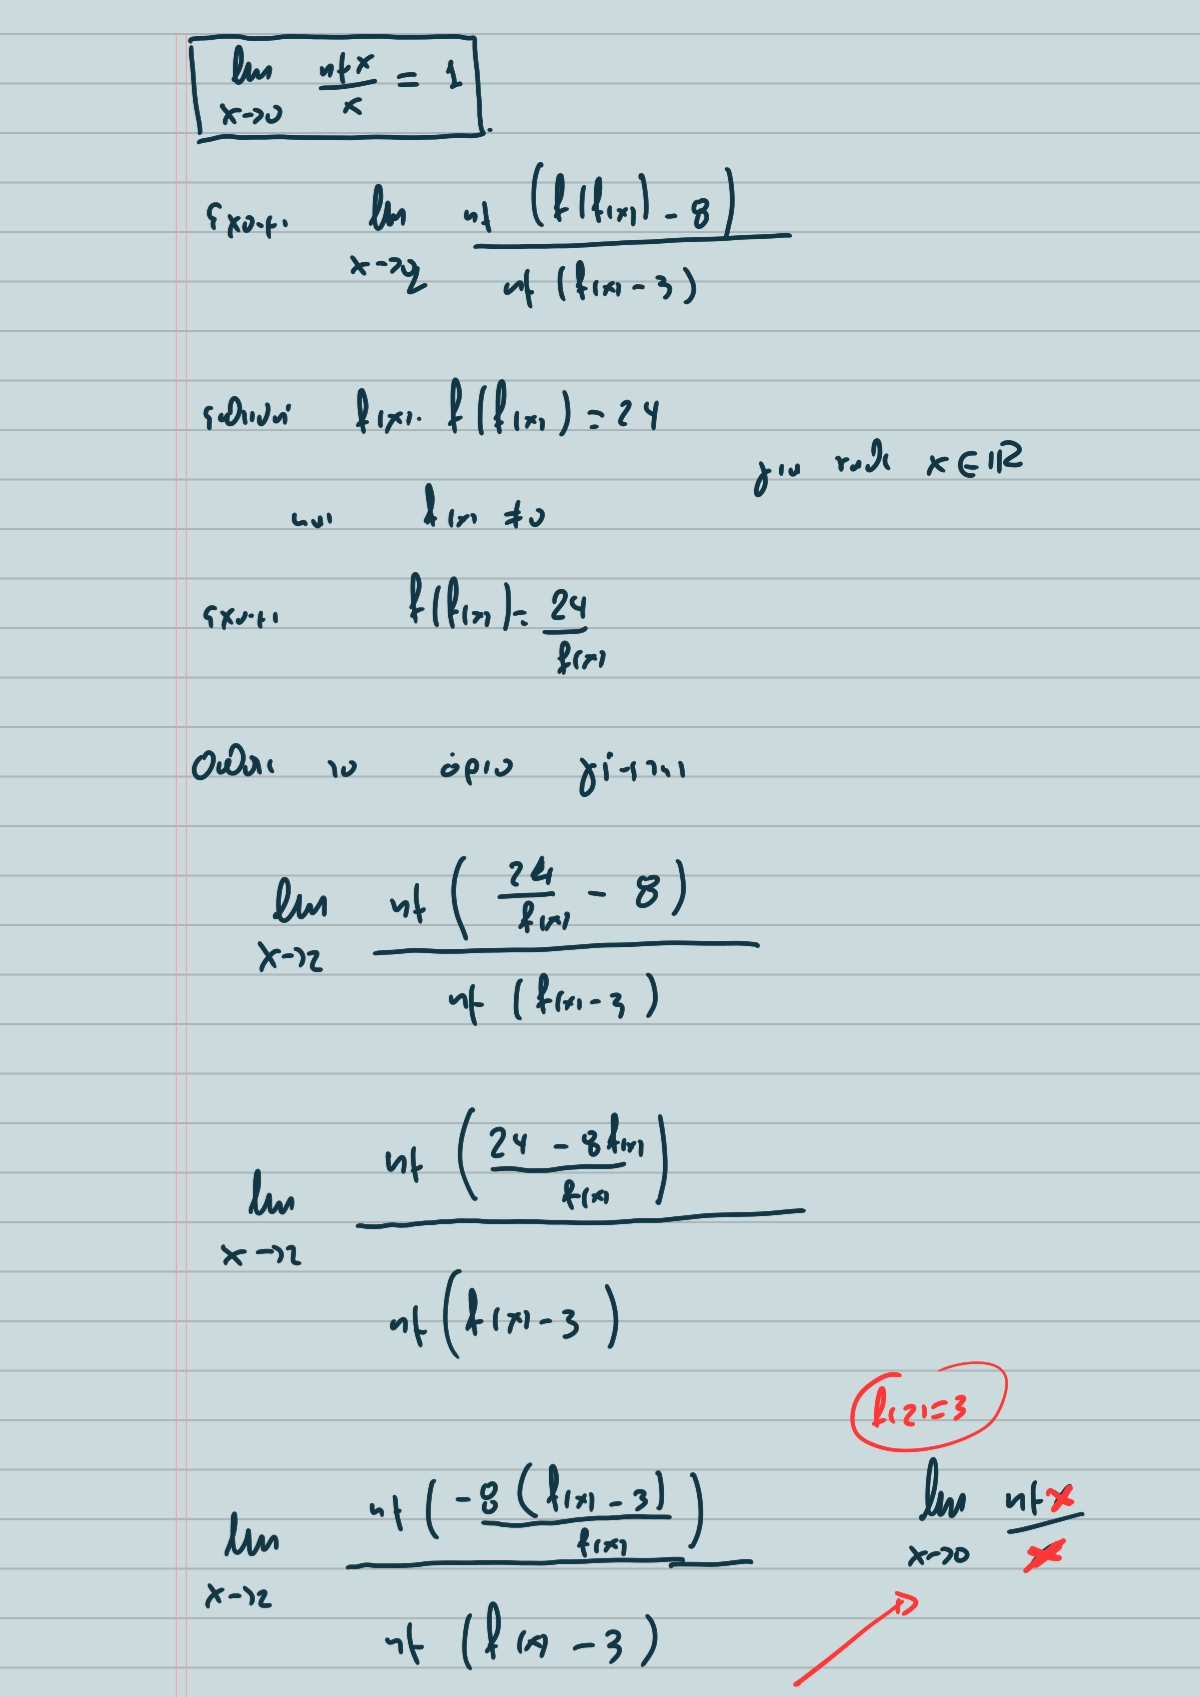 lim x→0 ημx/x = 1
έχουμε lim x→2 ημ(f(f(x)) - 8) / ημ(f(x) - 3)
επειδή f(x) · f(f(x)) = 24
για κάθε x ∈ ℝ
και f(x) ≠ 0
έχουμε f(f(x)) = 24/f(x)
το όριο γίνεται
lim x→2 ημ(24/f(x) - 8) / ημ(f(x) - 3)
lim x→2 ημ((24 - 8f(x))/f(x)) / ημ(f(x) - 3)
f(2) = 3
lim x→2 ημ(-8(f(x) - 3)/f(x)) / ημ(f(x) - 3)
lim x→0 ημx/x